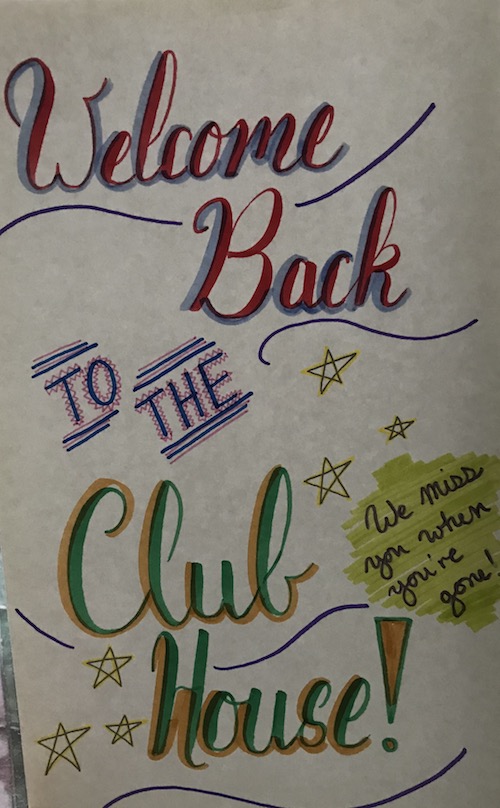 Welcome
Back
TO THE
Club
House!
We miss
you when
you're
gone!